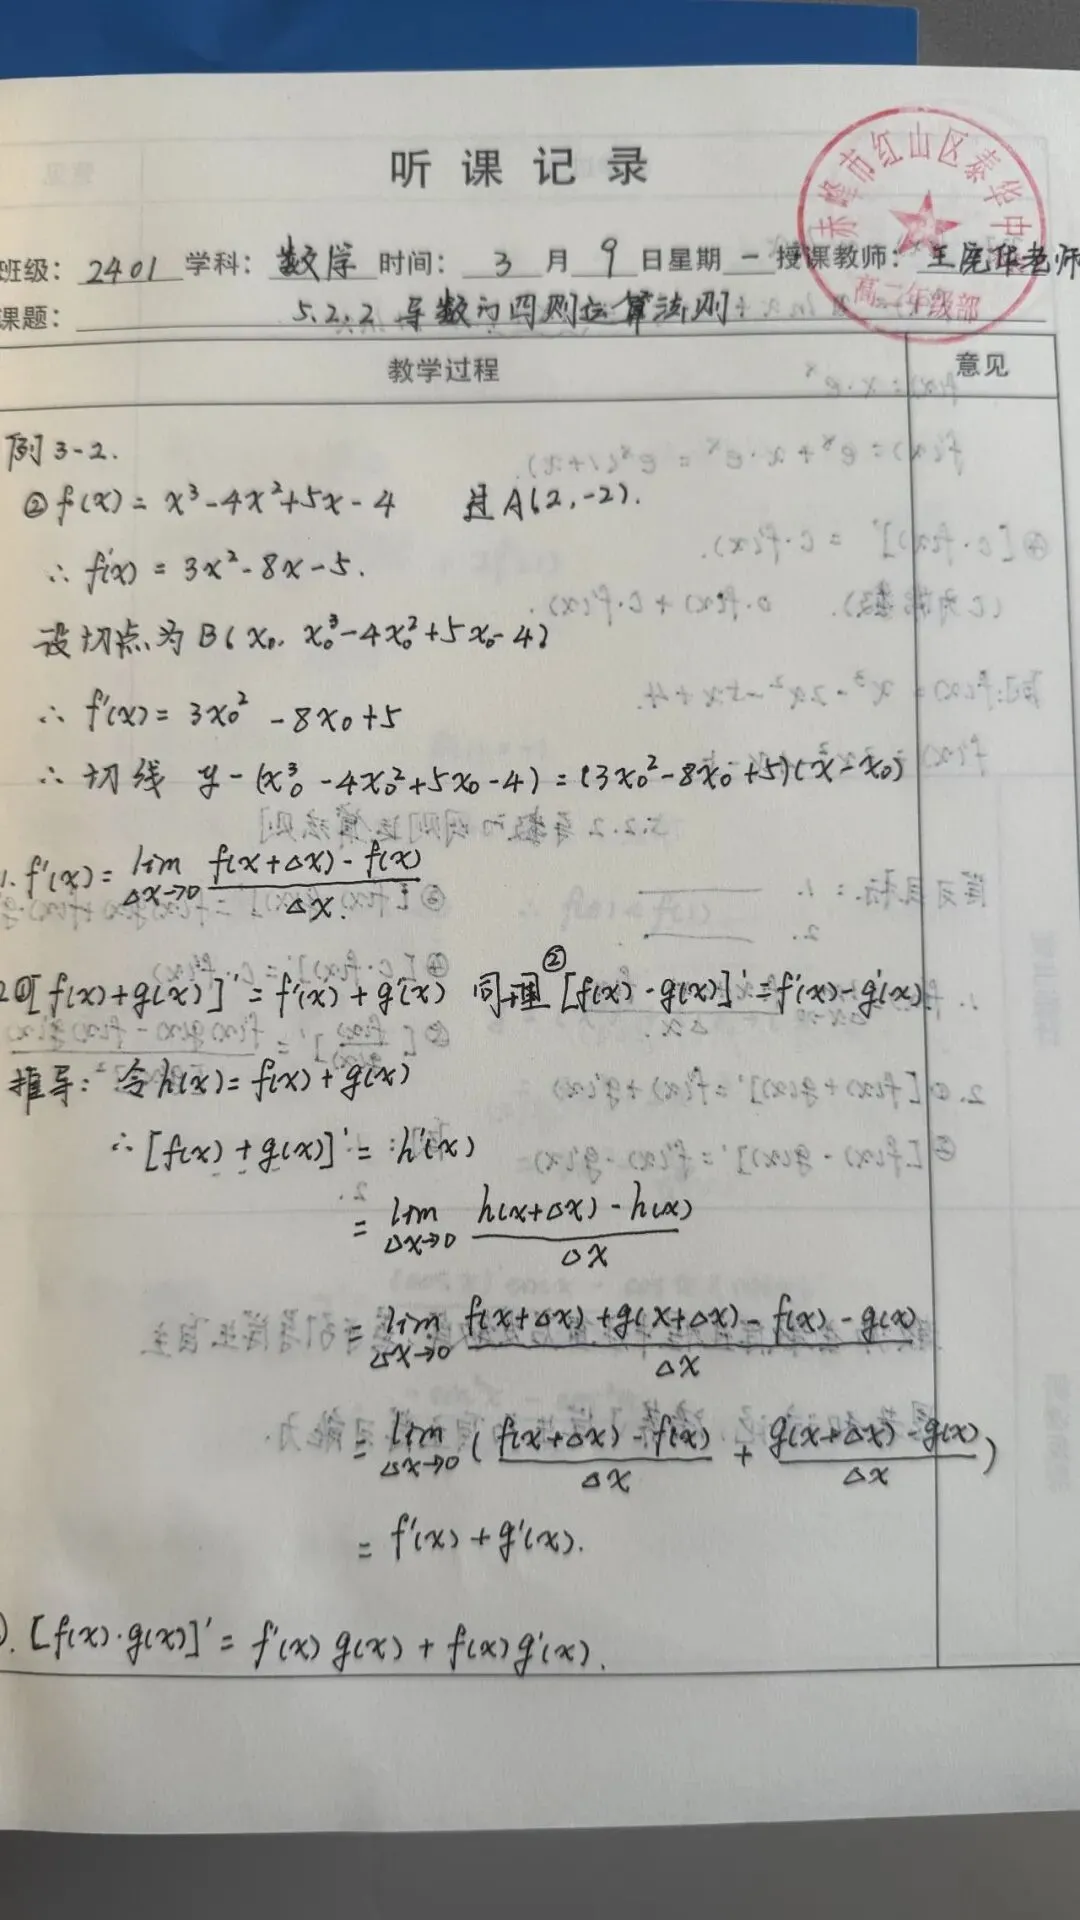 听课记录
赤峰市红山区泰华中
高二年级部
班级: 2401 学科: 数学 时间: 3 月 9 日星期 一 授课教师: 王 华老师
课题: 5.2.2 导数的四则运算法则
教学过程 意见
例3-2.
② f(x) = x³-4x²+5x-4 过A(2,-2).
∴ f'(x) = 3x²-8x-5.
设切点为B(x₀, x₀³-4x₀²+5x₀-4)
∴ f'(x) = 3x₀²-8x₀+5
∴ 切线 y-(x₀³-4x₀²+5x₀-4) = (3x₀²-8x₀+5)(x-x₀)
1. f'(x) = lim Δx→0 f(x+Δx)-f(x) / Δx.
2.①[f(x)+g(x)]' = f'(x)+g'(x) 同理②[f(x)-g(x)]' = f'(x)-g'(x).
推导: 令h(x) = f(x)+g(x)
∴ [f(x)+g(x)]' = h'(x)
= lim Δx→0 h(x+Δx)-h(x) / Δx
= lim Δx→0 f(x+Δx)+g(x+Δx)-f(x)-g(x) / Δx
= lim Δx→0 ( f(x+Δx)-f(x) / Δx + g(x+Δx)-g(x) / Δx )
= f'(x)+g'(x).
[f(x)·g(x)]' = f'(x)g(x)+f(x)g'(x).